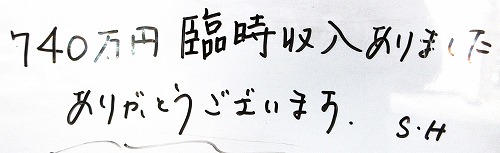 740万円 臨時収入ありました
ありがとうございます. S.H